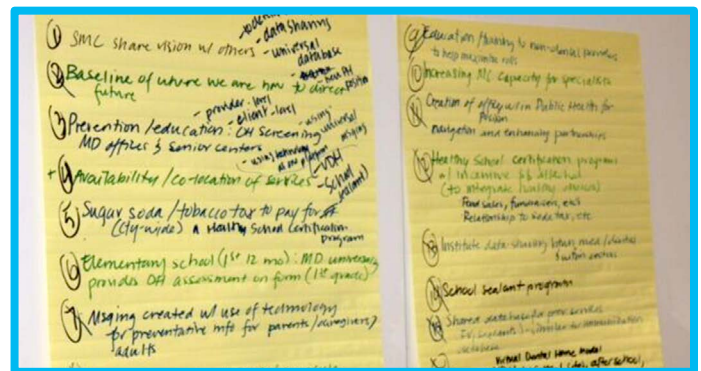 ① SMC share vision w/ others
- data sharing
- universal database
② Baseline of where we are now to direct future
- provider-level
- client-level
③ Prevention/education: OH Screening
MD offices & senior centers
+ ④ Availability/co-location of services
- VDH
- School
⑤ Sugar soda/tobacco tax to pay for
(cty-wide) a Healthy School Certification program
⑥ Elementary school (1st 12 mo): MD universally
provides OH assessment on form (1st grade)
⑦ Msging created w/ use of technology
for preventative info for parents/caregivers/
adults
⑨ Education/training to non-dental providers
to help maximize role
⑩ Increasing MC capacity for specialists
⑪ Creation of office w/in Public Health for
navigation and enhancing partnerships
Healthy School certification program
w/ incentive
(to integrate healthy choices)
Food sales, fundraisers, etc.
Relationship to soda tax, etc.
Institute data-sharing btwn med/dental
School sealant program
Shared database for prev. services
database
Virtual Dental Home Model
after school,